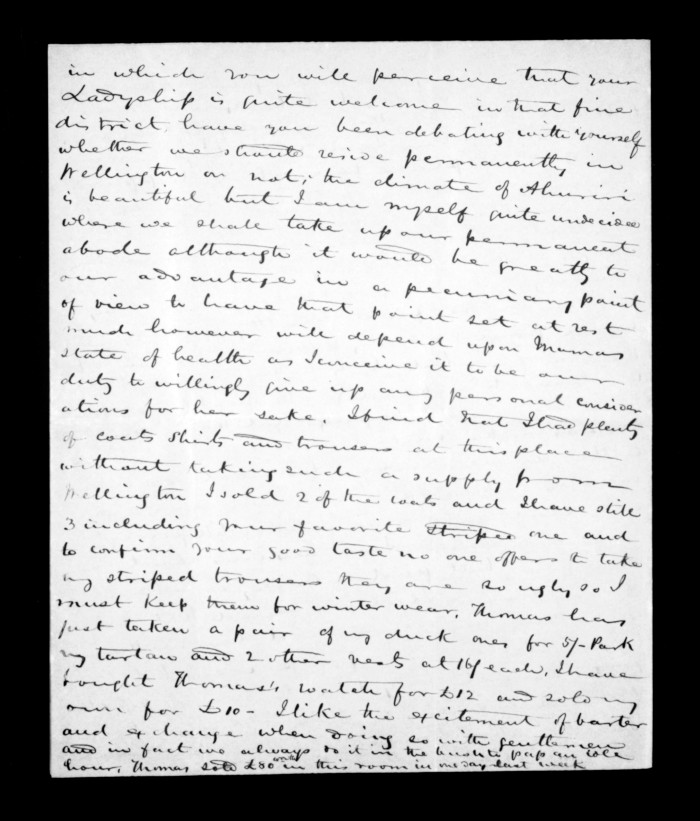 in which you will perceive that your
Ladyship is quite welcome in that fine
district, have you been debating with yourself
whether we should reside permanently in
Wellington or not; the climate of Ahuriri
is beautiful but I am myself quite undecided
where we shall take up our permanent
abode although it would be greatly to
our advantage in a pecuniary point
of view to have that point set at rest
much however will depend upon Mamas
state of health as I conceive it to be our
duty to willingly give up any personal consider
ations for her sake. I find that I had plenty
of coats shirts and trousers at this place
without taking such a supply from
Wellington I sold 2 of the coats and I have still
3 including your favorite striped one and
to confirm your good taste no one offers to take
my striped trousers they are so ugly so I
must keep them for winter wear, Thomas has
just taken a pair of my duck ones for 5/- Park
my tartan and 2 other vests at 16/ each, I have
bought Thomas's watch for £12 and sold my
own for £10 - I like the excitement of barter
and exchange when doing so with gentlemen
and in fact we always do it in the bush to pass an idle
hour, Thomas sold £80 worth in this room in one day last week